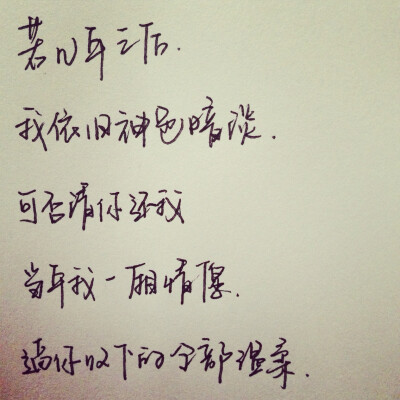 若几年之后.
我依旧神色暗淡.
可否请你还我
当年我一厢情愿.
逼你收下的全部温柔.